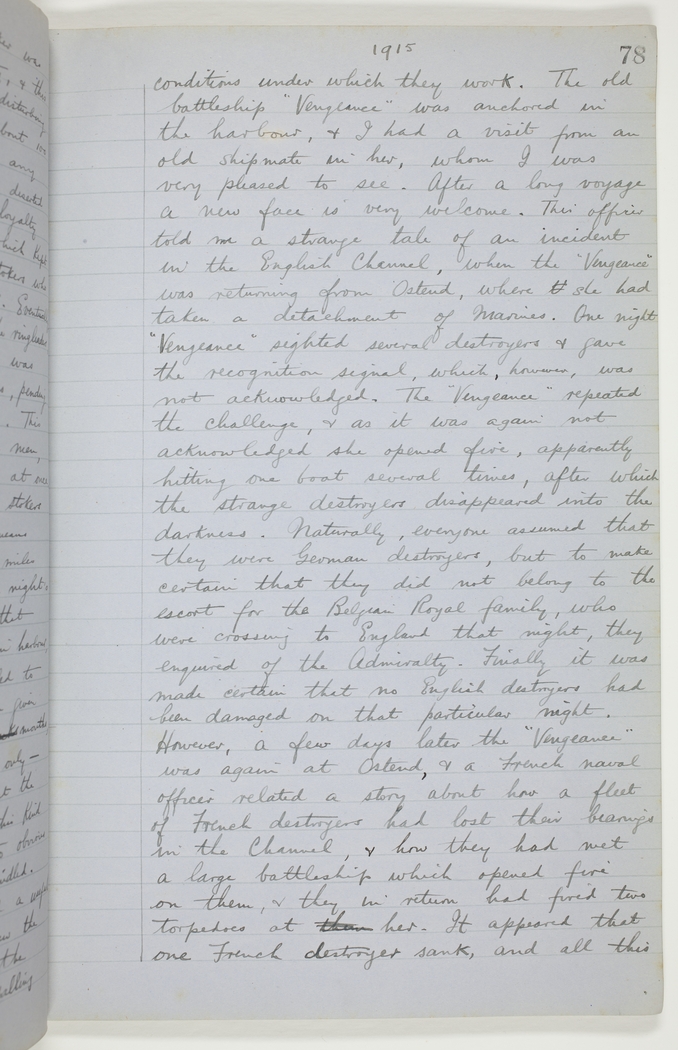 1915
78
conditions under which they work. The old
battleship "Vengeance" was anchored in
the harbour, & I had a visit from an
old shipmate in her, whom I was
very pleased to see. After a long voyage
a new face is very welcome. This officer
told me a strange tale of an incident
in the English Channel, when the "Vengeance"
was returning from Ostend, where she had
taken a detachment of Marines. One night
"Vengeance" sighted several destroyers & gave
the recognition signal, which, however, was
not acknowledged. The "Vengeance" repeated
the challenge, & as it was again not
acknowledged she opened fire, apparently
hitting one boat several times, after which
the strange destroyers disappeared into the
darkness. Naturally, everyone assumed that
they were German destroyers, but to make
certain that they did not belong to the
escort for the Belgian Royal family, who
were crossing to England that night, they
enquired of the Admiralty. Finally it was
made certain that no English destroyers had
been damaged on that particular night.
However, a few days later the "Vengeance"
was again at Ostend, & a French naval
officer related a story about how a fleet
of French destroyers had lost their bearings
in the Channel, & how they had met
a large battleship which opened fire
on them, & they in return had fired two
torpedoes at them her. It appeared that
one French destroyer sank, and all this